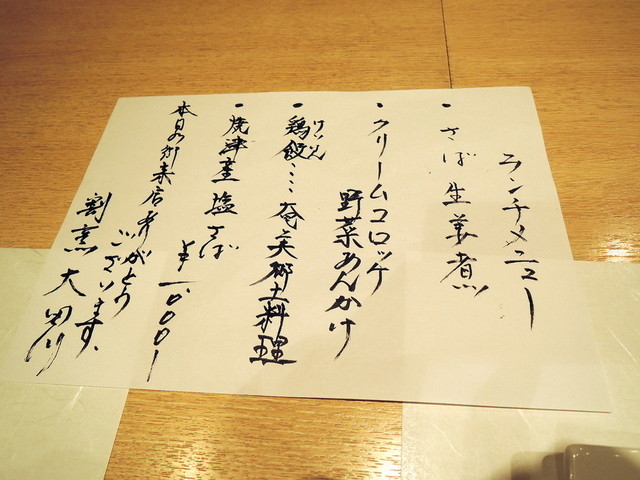 ランチメニュー
・さば生姜煮
・クリームコロッケ
野菜あんかけ
けいはん
・鶏飯・・・・奄美郷土料理
・焼津産塩さば
¥一、〇〇〇ー
本日の御来店有がとう
ございます、
割烹 大田川